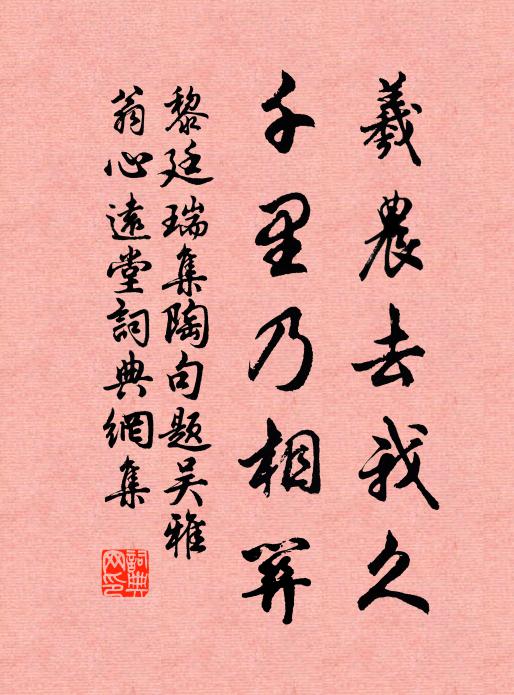 羲農去我久
千里乃相關
黎廷瑞集陶句題吴雅
翁心遠堂詞典網集
詞典網印